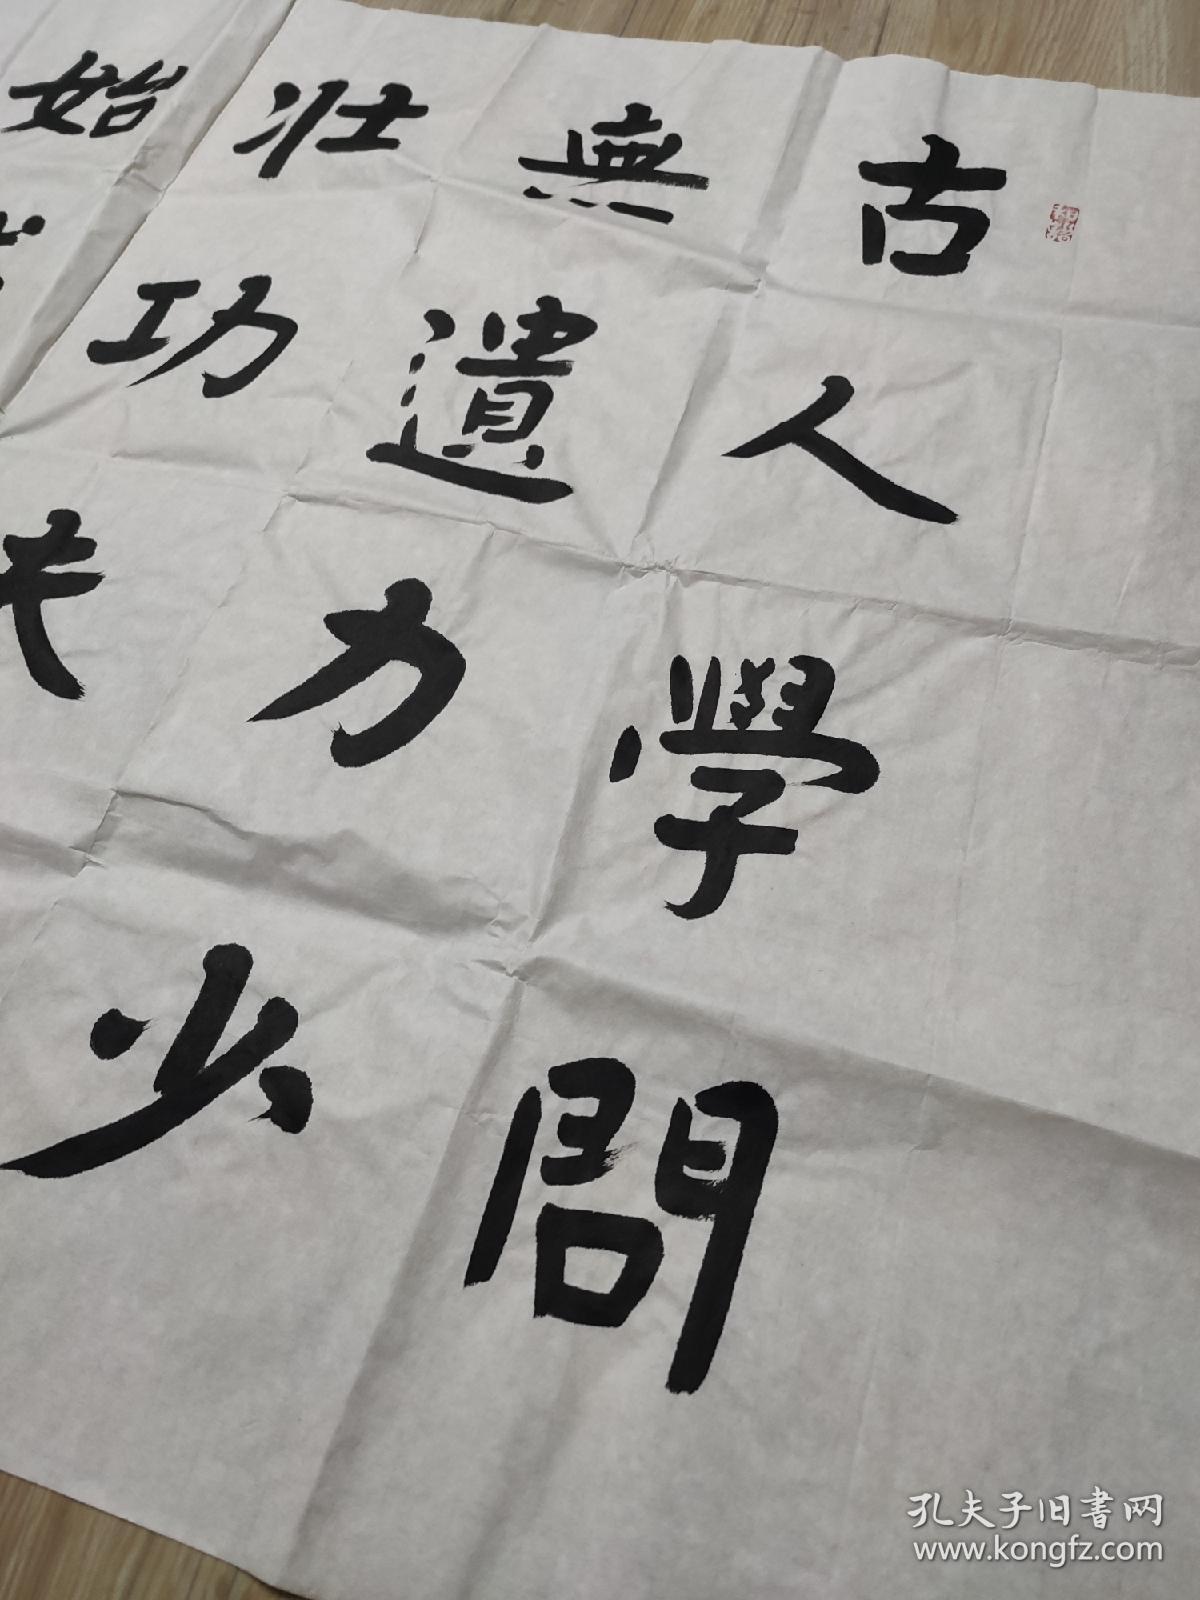 古人學問
無遺力少
壯功夫
始
孔夫子旧書网
www.kongfz.com